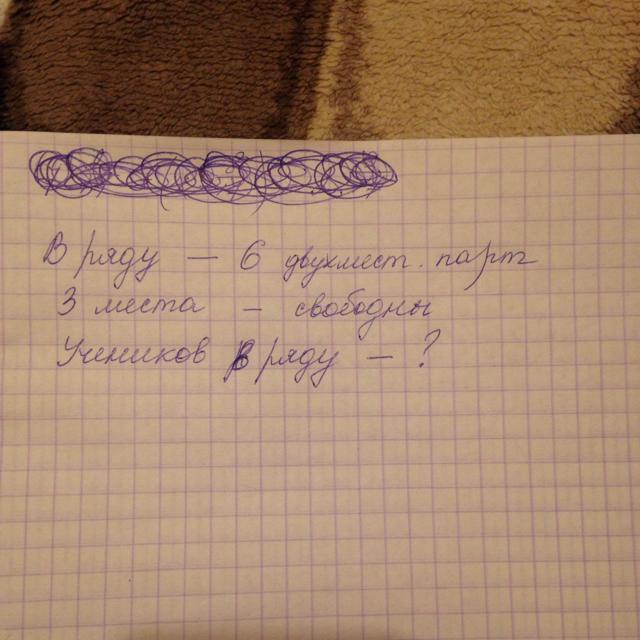 В ряду — 6 двухмест. парт
3 места — свободны
Учеников в ряду — ?